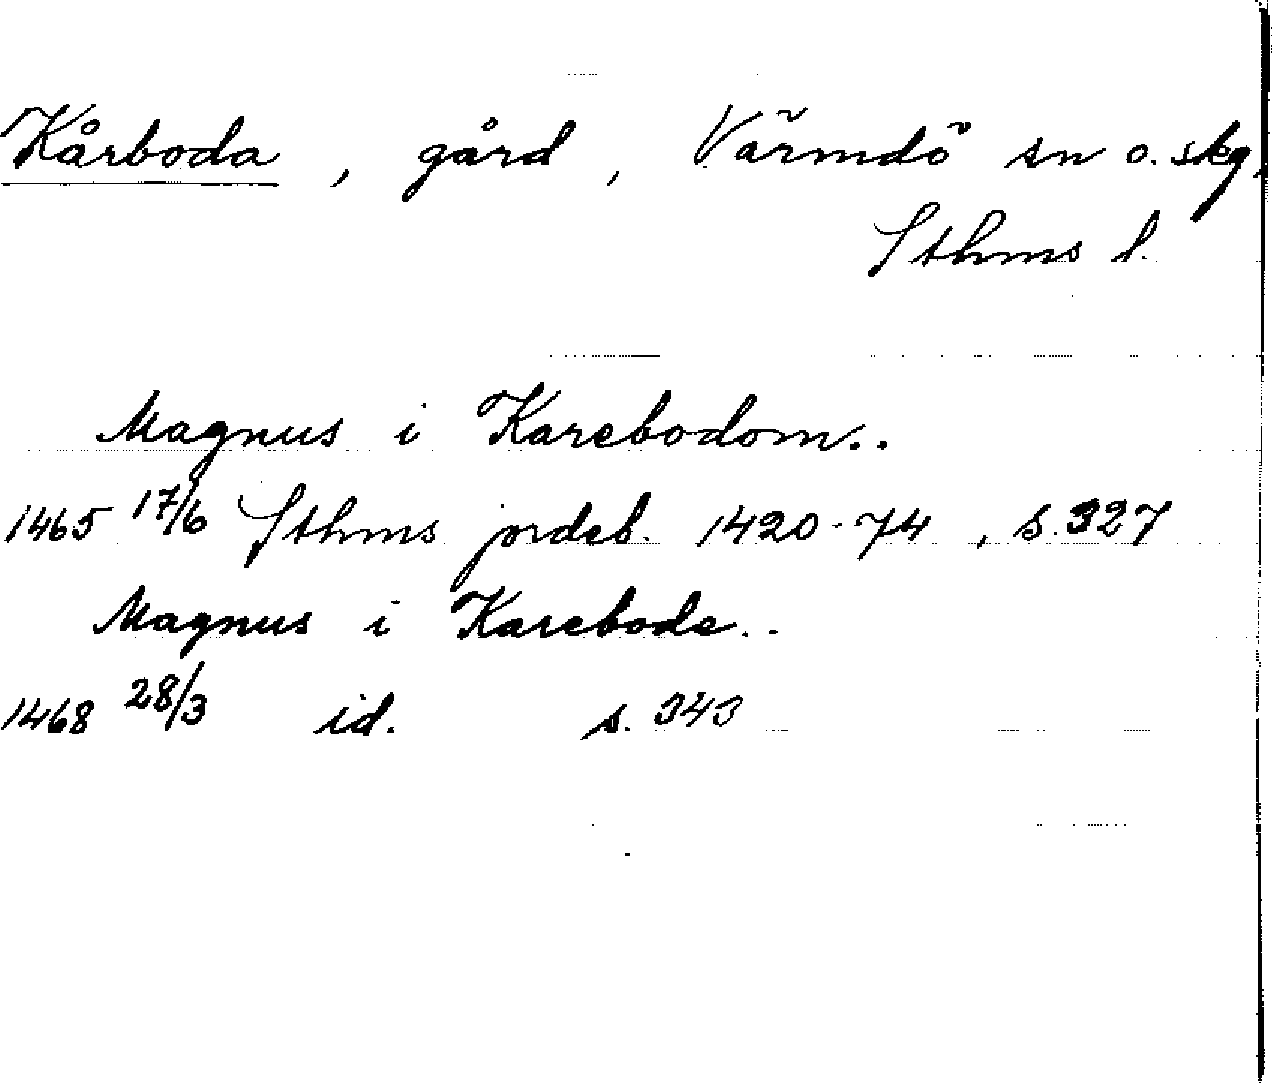 Kårboda, gård, Värmdö sn o. skg,
Sthms l.
Magnus i Karebodom..
1465 17/6 Sthms jordeb. 1420-74, s. 327
Magnus i Karebode..
1468 28/3 id. s. 343